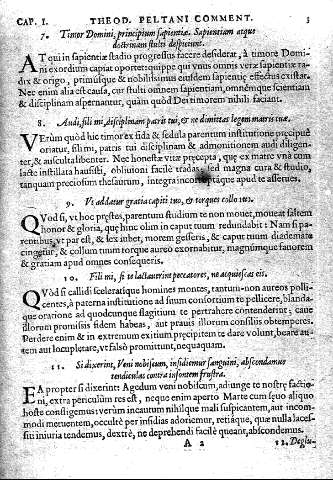 CAP. I. THEOD. PELTANI COMMENT. 3
7. Timor Domini, principium sapientiæ. Sapientiam atque
doctrinam stulti despiciunt.
AT qui in sapientiæ stadio progressus facere desiderat, à timore Domi-
ni exordium capiat oportet: quippe qui vnus omnis veræ sapientiæ ra-
dix & origo, primusque & nobilissimus eiusdem sapientiæ effectus existat.
Nec enim alia est causa, cur stulti omnem sapientiam, omnémque scientiam
& disciplinam aspernantur, quàm quòd Dei timorem nihili faciant.
8. Audi, fili mi, disciplinam patris tui, & ne dimittas legem matris tuæ.
VErùm quòd hic timor ex fida & sedula parentum institutione præcipuè
oriatur, fili mi, patris tui disciplinam & admonitionem audi diligen-
ter, & ausculta libenter. Nec honestæ vitæ præcepta, quæ ex matre vna cum
lacte instillata hausisti, obliuioni facile tradas, sed magna cura & studio,
tanquam preciosum thesaurum, integra incorruptáque apud te asserues.
9. Vt addatur gratia capiti tuo, & torques collo tuo.
QVod si, vt hoc præstes, parentum studium te non mouet, moueat saltem
honor & gloria, quę hinc olim in caput tuum redundabit: Nam si pa-
rentibus, vt par est, & lex iubet, morem gesseris, & caput tuum diademate
cingetur, & collum tuum torque aureo exornabitur, magnúmque fauorem
& gratiam apud omnes consequeris.
10. Fili mi, si te lactauerint peccatores, ne acquiescas eis.
QVòd si callidi sceleratíque homines montes, tantùm-non aureos pollici-
centes, à paterna institutione ad suum consortium te pellicere, blandá-
que oratione ad quodcumque flagitium te pertrahere contenderint: caue
illorum promissis fidem habeas, aut prauis illorum consiliis obtemperes.
Perdere enim & in extremum exitium præcipitem te dare volunt, beare au-
tem aut locupletare, vt falsò promittunt, nequaquam.
11. Si dixerint, Veni nobiscum, insidiemur sanguini, abscondamus
tendiculas contra insontem frustra.
EA propter si dixerint: Agedum veni nobiscum, adiunge te nostræ factio-
ni, extra periculum res est, neque enim aperto Marte cum sęuo aliquo
hoste congligemus: verùm incautum nihilque mali suspicantem, aut incom-
modi metuentem, occultè per insidias adoriemur, retiáque, quæ nulla laces-
siti iniuria tendemus, dextrè, ne deprehendi facilè queant, abscondemus.
A 2 12. Deglu-